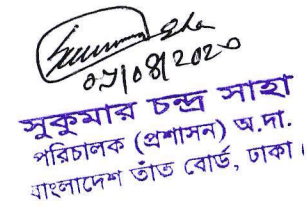 ০৭/০৪/2020
সুকুমার চন্দ্র সাহা
পরিচালক (প্রশাসন) অ.দা.
বাংলাদেশ তাঁত বোর্ড, ঢাকা।